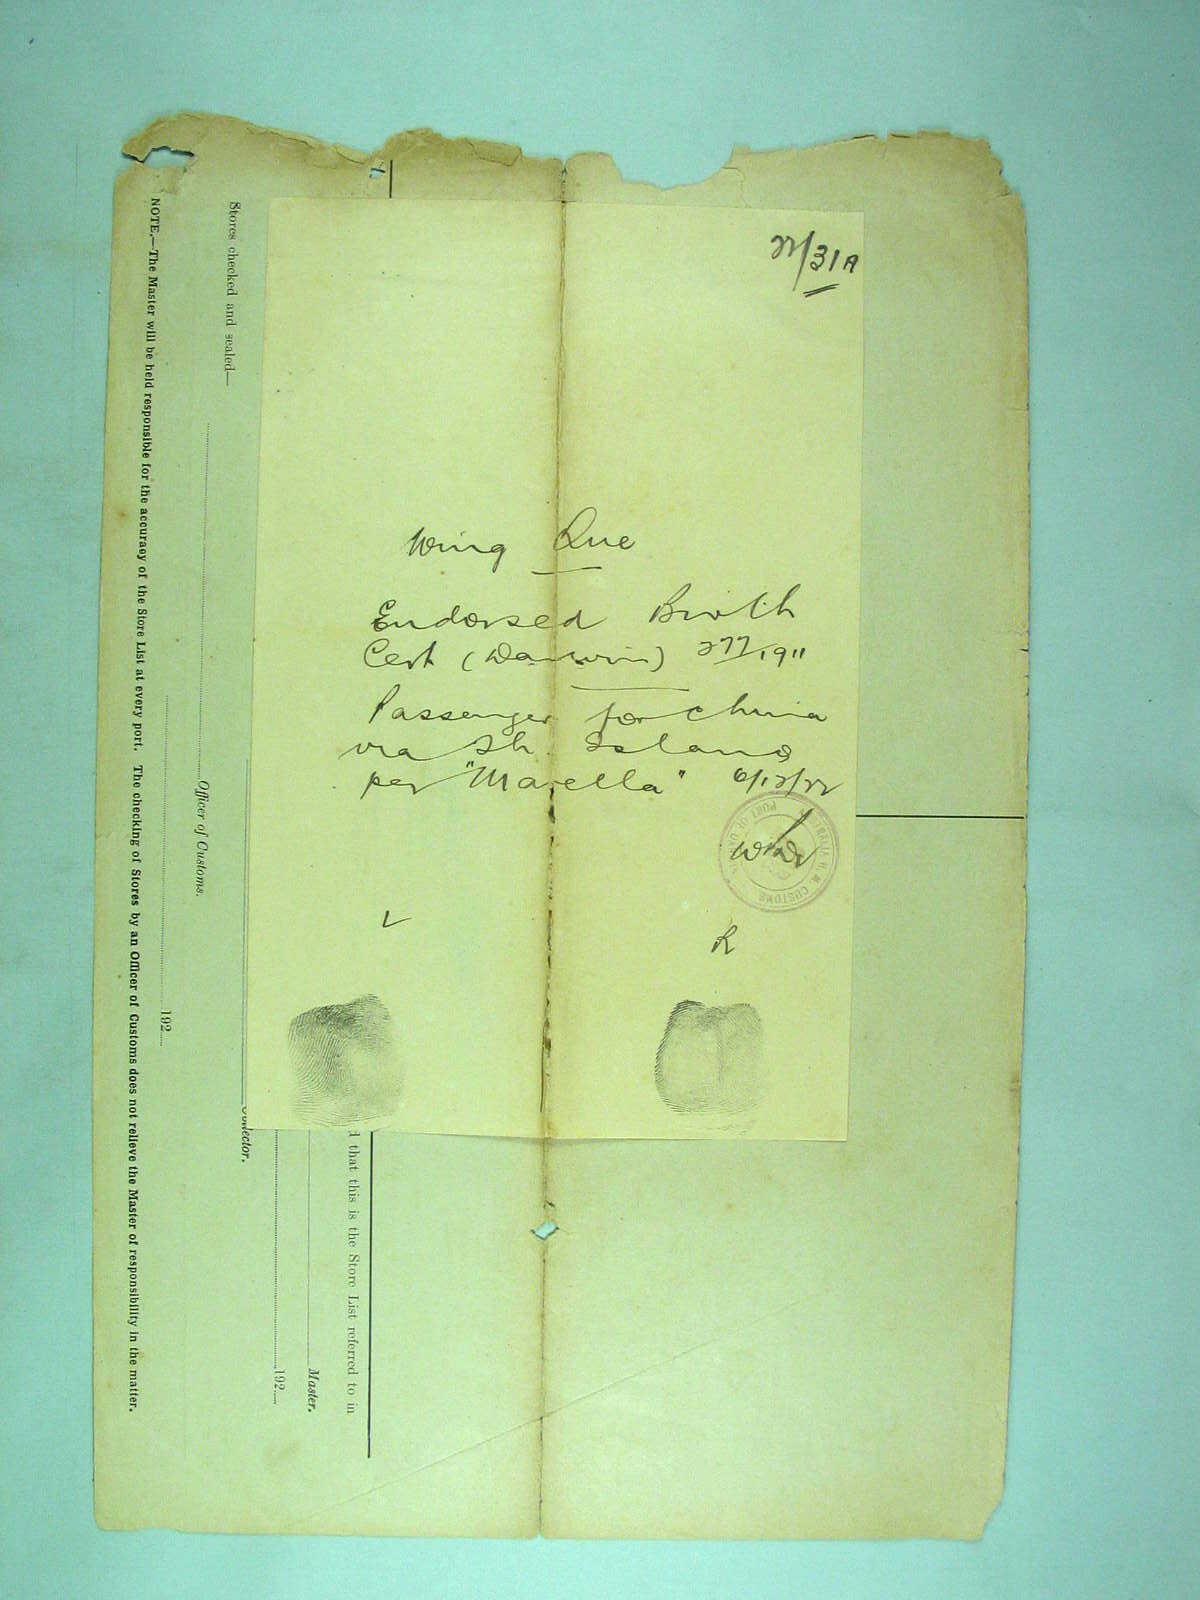 22/31A
Wing Que
Endorsed Birth
Cert (Darwin) 277/1911
Passenger for China
via Th. Island
per "Marella" 6/12/22
L
R
Stores checked and sealed—
Officer of Customs.
192
NOTE.—The Master will be held responsible for the accuracy of the Store List at every port. The checking of Stores by an Officer of Customs does not relieve the Master of responsibility in the matter.
d that this is the Store List referred to in
Master.
192
Collector.
H. M. CUSTOMS
PORT OF